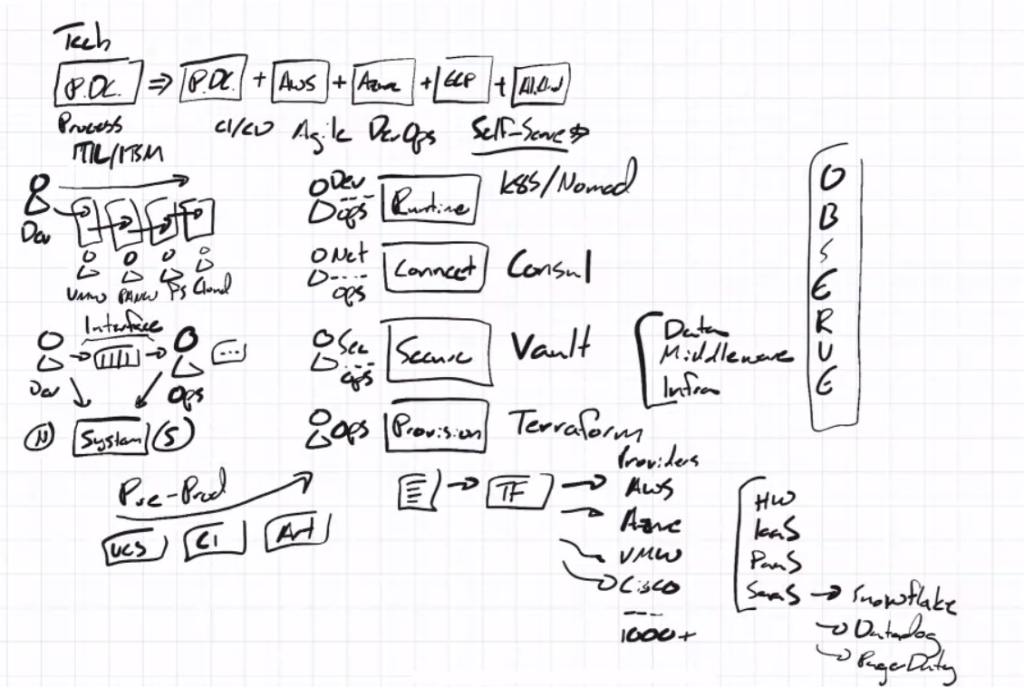 Tech
P.DC. ⇒ P.DC. + AWS + Azure + GCP + Ali.Cloud
Process CI/CD Agile DevOps Self-Serve
ITIL/ITSM
Dev
VMW PANW F5 Cloud
Dev
ops
Runtime
K8S/Nomad
Net
ops
Connect
Consul
Interface
Dev
Ops
System
N
S
Sec
ops
Secure
Vault
Data
Middleware
Infra
Ops
Provision
Terraform
OBSERVE
Pre-Prod
VCS CI Art
TF
Providers
AWS
Azure
VMW
Cisco
1000+
HW
IaaS
PaaS
SaaS → Snowflake
Datadog
PagerDuty